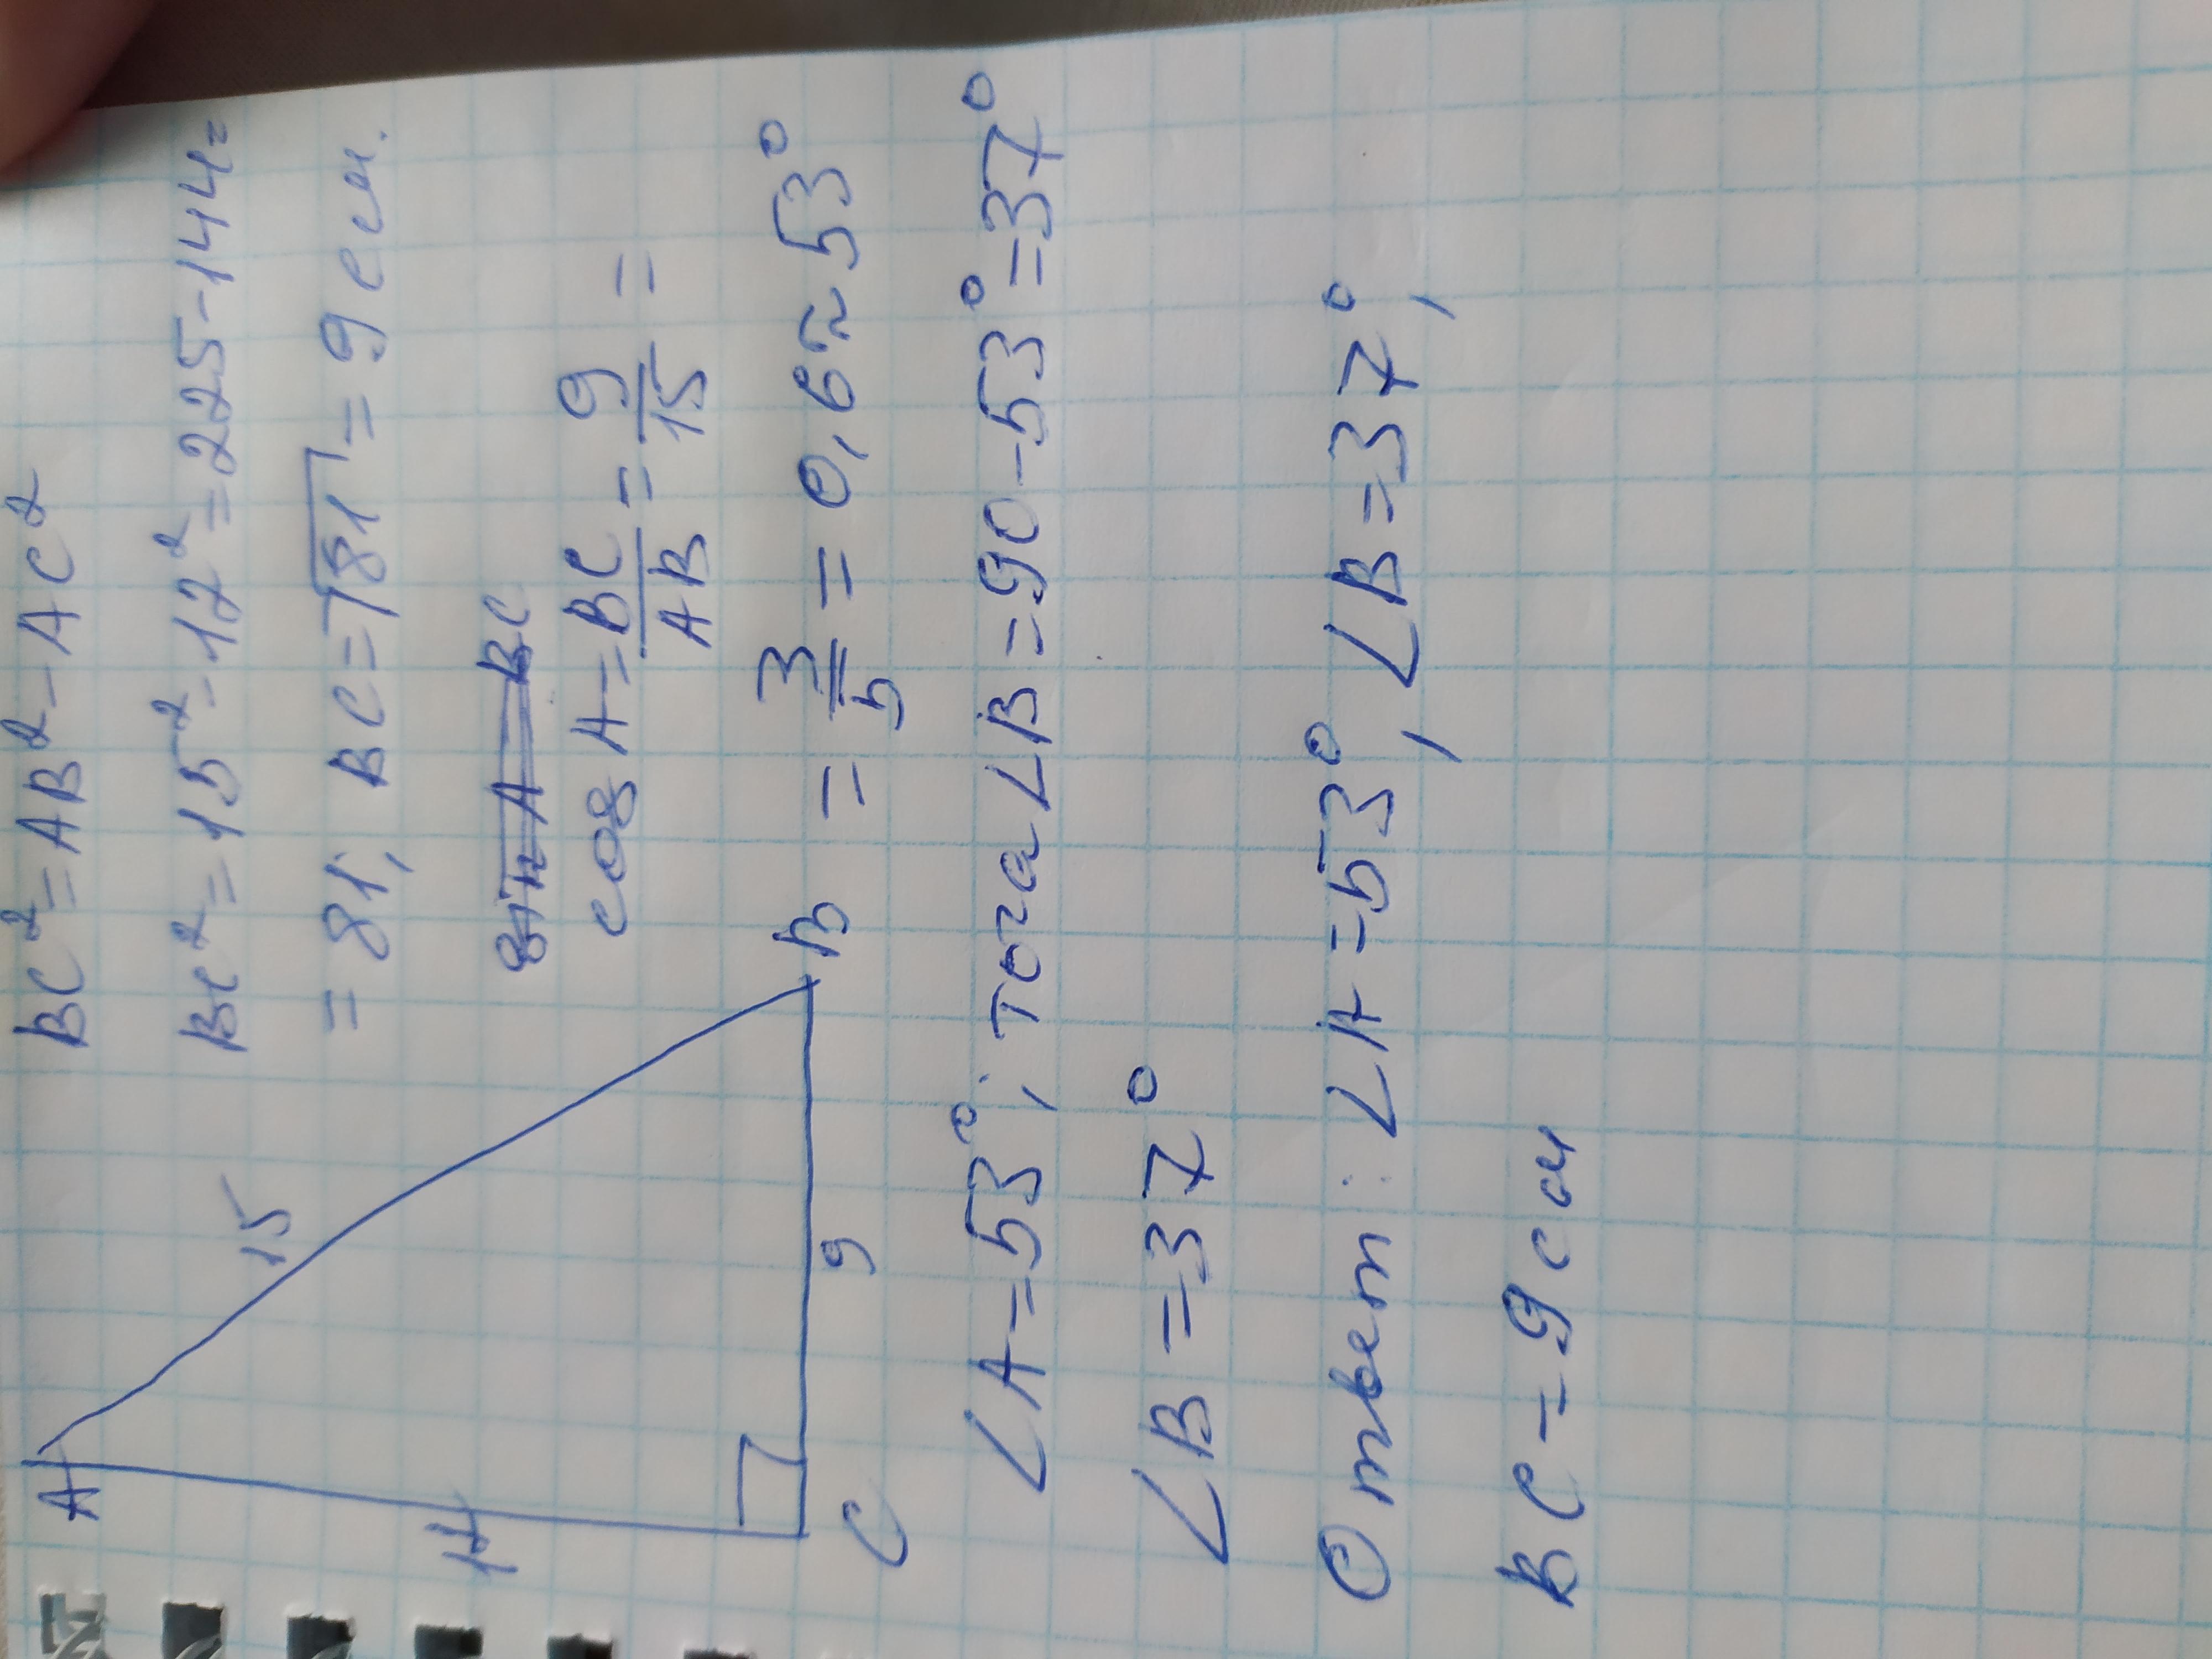 BC² = AB² - AC²
BC² = 15² - 12² = 225 - 144 =
= 81; BC = √81 = 9 см.
A
15
12
sin A BC
cos A = BC/AB = 9/15 =
= 3/5 = 0,6 ≈ 53°
B
C
9
∠A = 53°; Тога ∠B = 90 - 53° = 37°
∠B = 37°
Ответ: ∠A = 53°, ∠B = 37°,
BC = 9 см